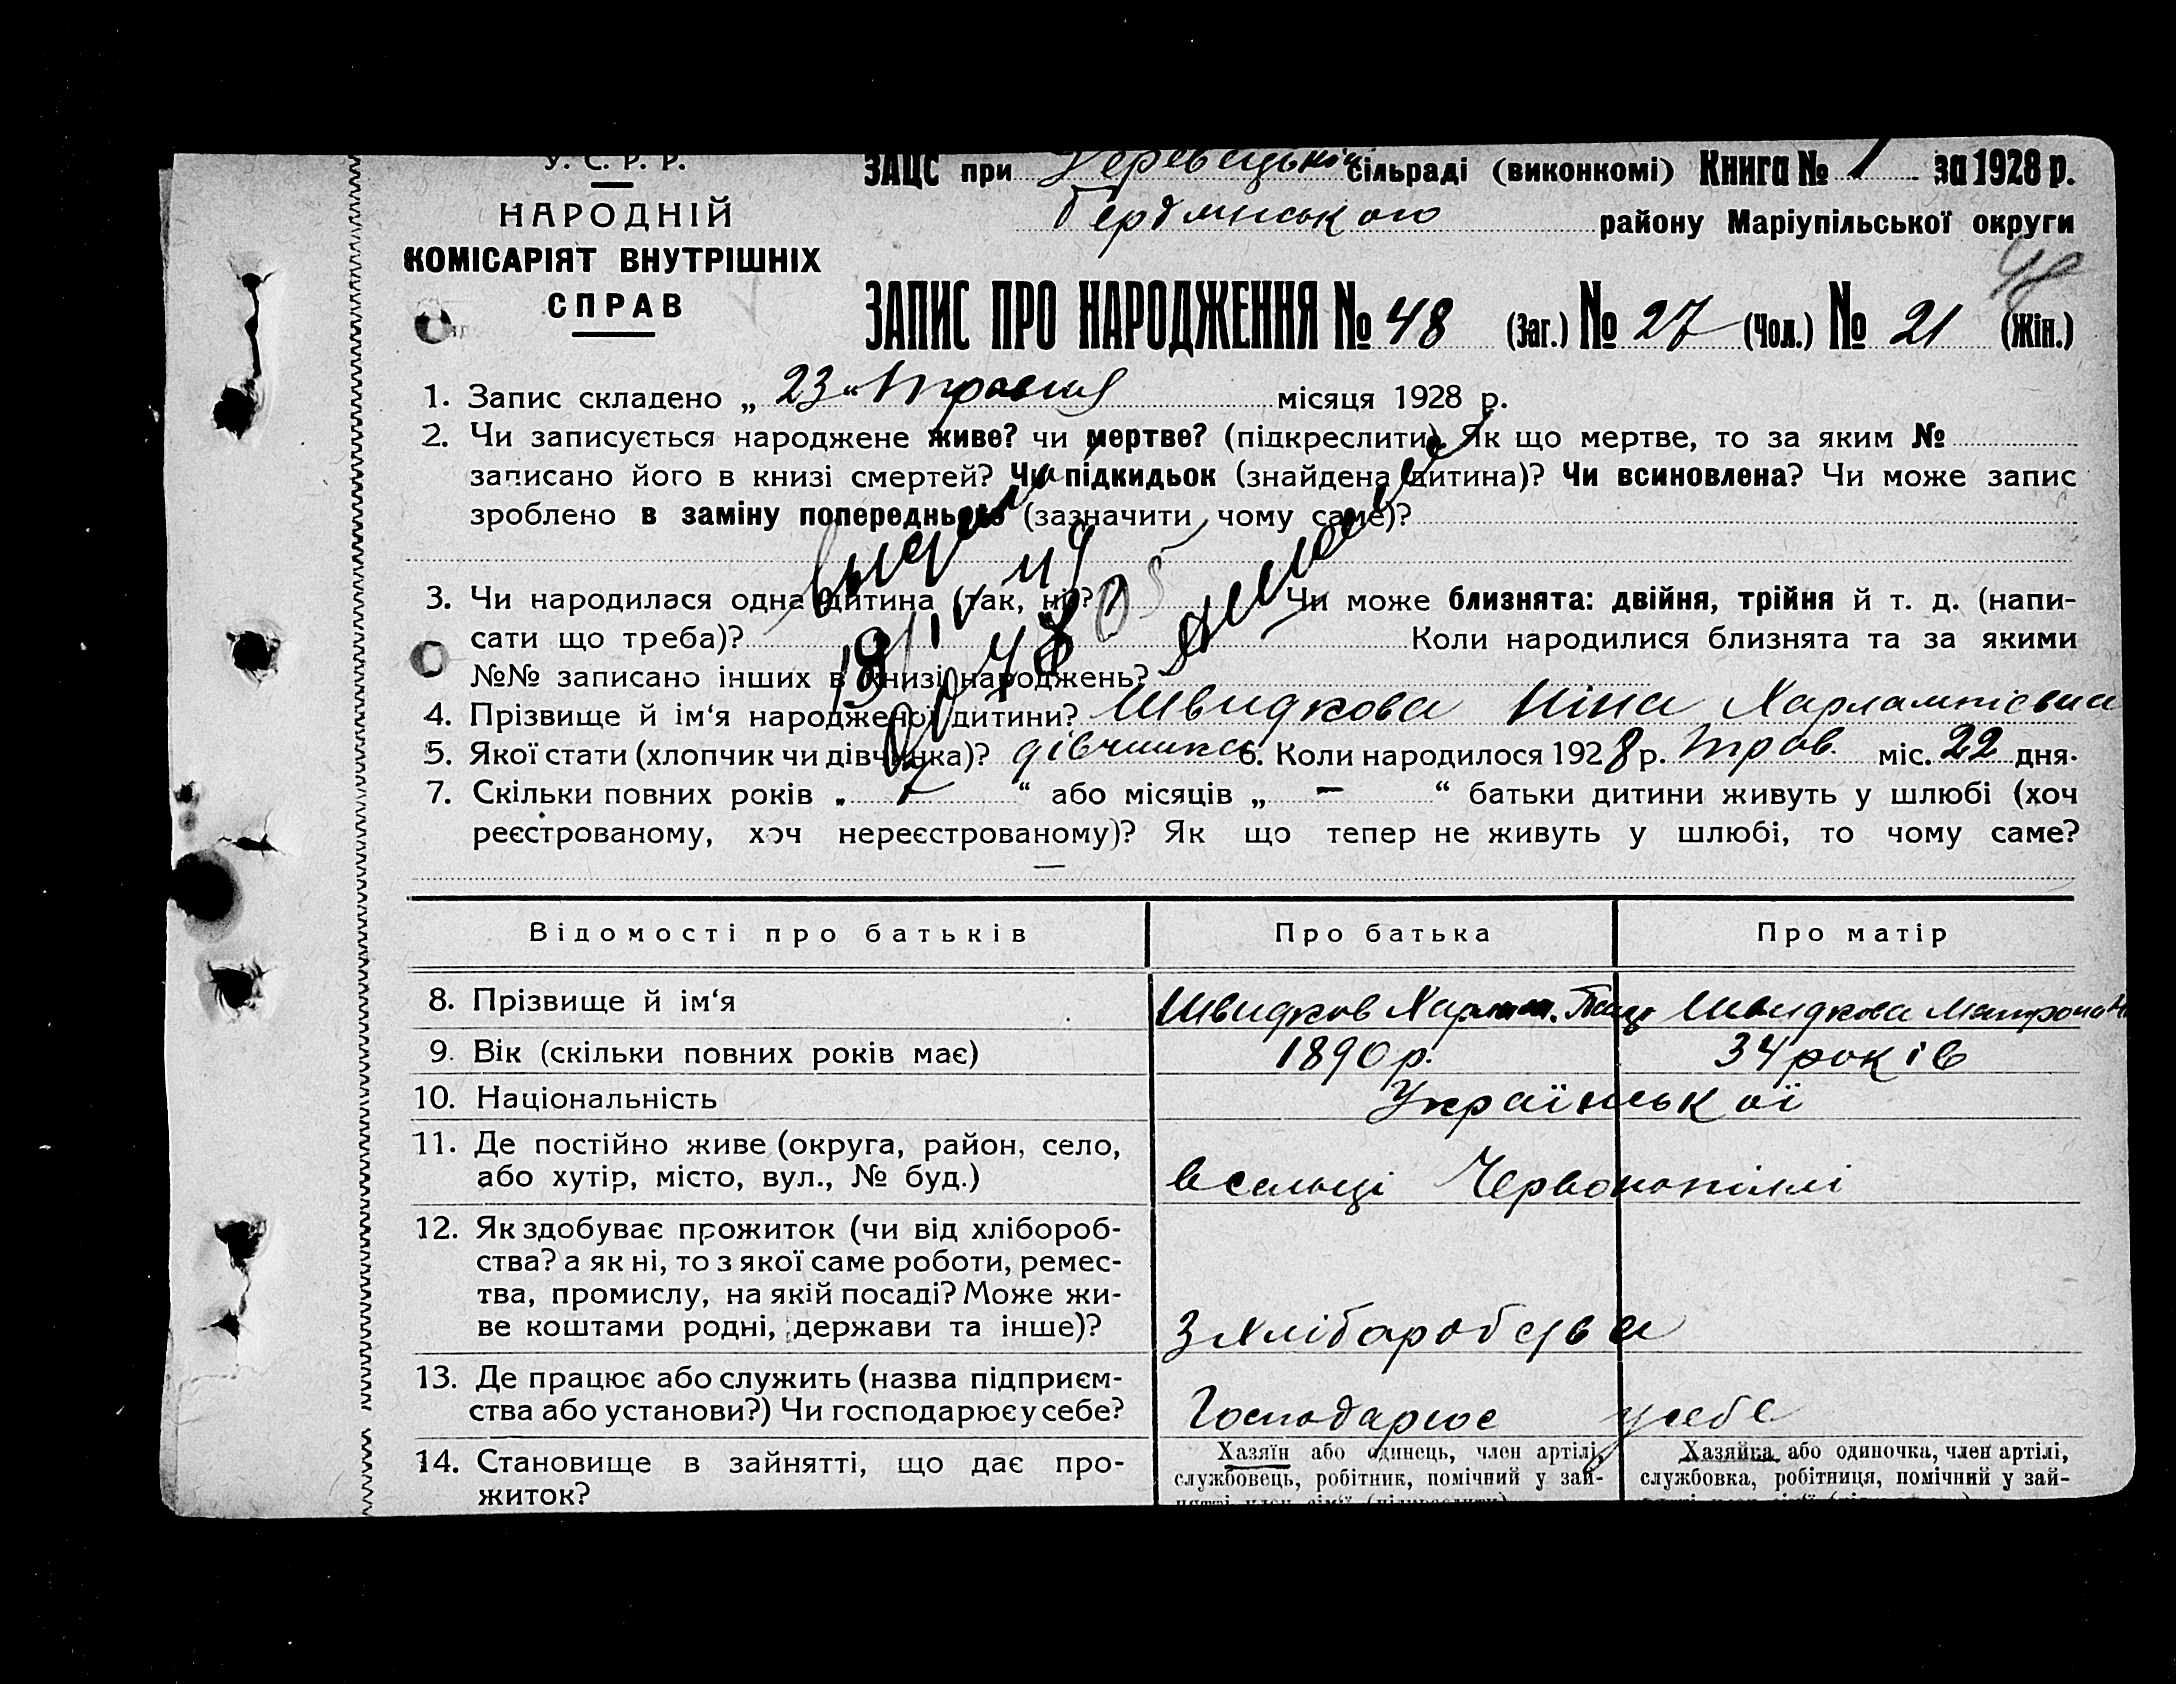 У. С. Р. Р.
НАРОДНІЙ
КОМІСАРІЯТ ВНУТРІШНІХ
СПРАВ
ЗАЦС при сільраді (виконкомі) Книга № 1 за 1928 р.
Бердянського району Маріупільської округи
48
ЗАПИС ПРО НАРОДЖЕННЯ № 48 (Заг.) № 27 (Чол.) № 21 (Жін.)
1. Запис складено „ 23 “ травня місяця 1928 р.
2. Чи записується народжене живе? чи мертве? (підкреслити). Як що мертве, то за яким №
записано його в книзі смертей? Чи підкидьок (знайдена дитина)? Чи всиновлена? Чи може запис
зроблено в заміну попереднього (зазначити чому саме)?
3. Чи народилася одна дитина (так, ні)? Чи може близнята: двійня, трійня й т. д. (напи-
сати що треба)? Коли народилися близнята та за якими
№№ записано інших в книзі народжень?
4. Прізвище й ім‘я народженої дитини? Швидкова Ніна Харлампієвна
5. Якої стати (хлопчик чи дівчинка)? дівчинка 6. Коли народилося 1928 р. трав. міс. 22 дня.
7. Скільки повних років „ “ або місяців „ — “ батьки дитини живуть у шлюбі (хоч
реєстрованому, хоч нереєстрованому)? Як що тепер не живуть у шлюбі, то чому саме?
—
Відомості про батьків Про батька Про матір
8. Прізвище й ім‘я Швидков Харлам. Швидкова Матрона
9. Вік (скільки повних років має) 1890 р. 34 років
10. Національність Української
11. Де постійно живе (округа, район, село,
або хутір, місто, вул., № буд.) в сельці Червонопіллі
12. Як здобуває прожиток (чи від хлібороб-
ства? а як ні, то з якої саме роботи, ремес-
тва, промислу, на якій посаді? Може жи-
ве коштами родні, держави та інше)? З хліборобства
13. Де працює або служить (назва підприєм-
ства або установи?) Чи господарює у себе? Господарює у себе
14. Становище в зайнятті, що дає про-
житок?
Хазяїн або одинець, член артілі,
службовець, робітник, помічний у зай-
Хазяйка або одиночка, член артілі,
службовка, робітниця, помічний у зай-